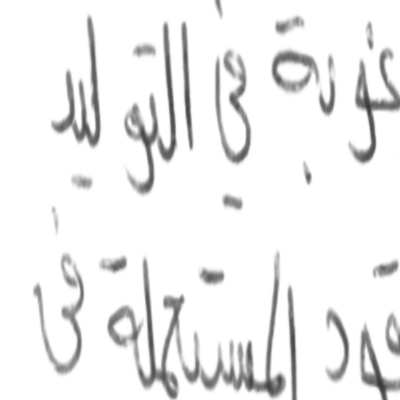 غوبة في التوليد
قود المستعملة في